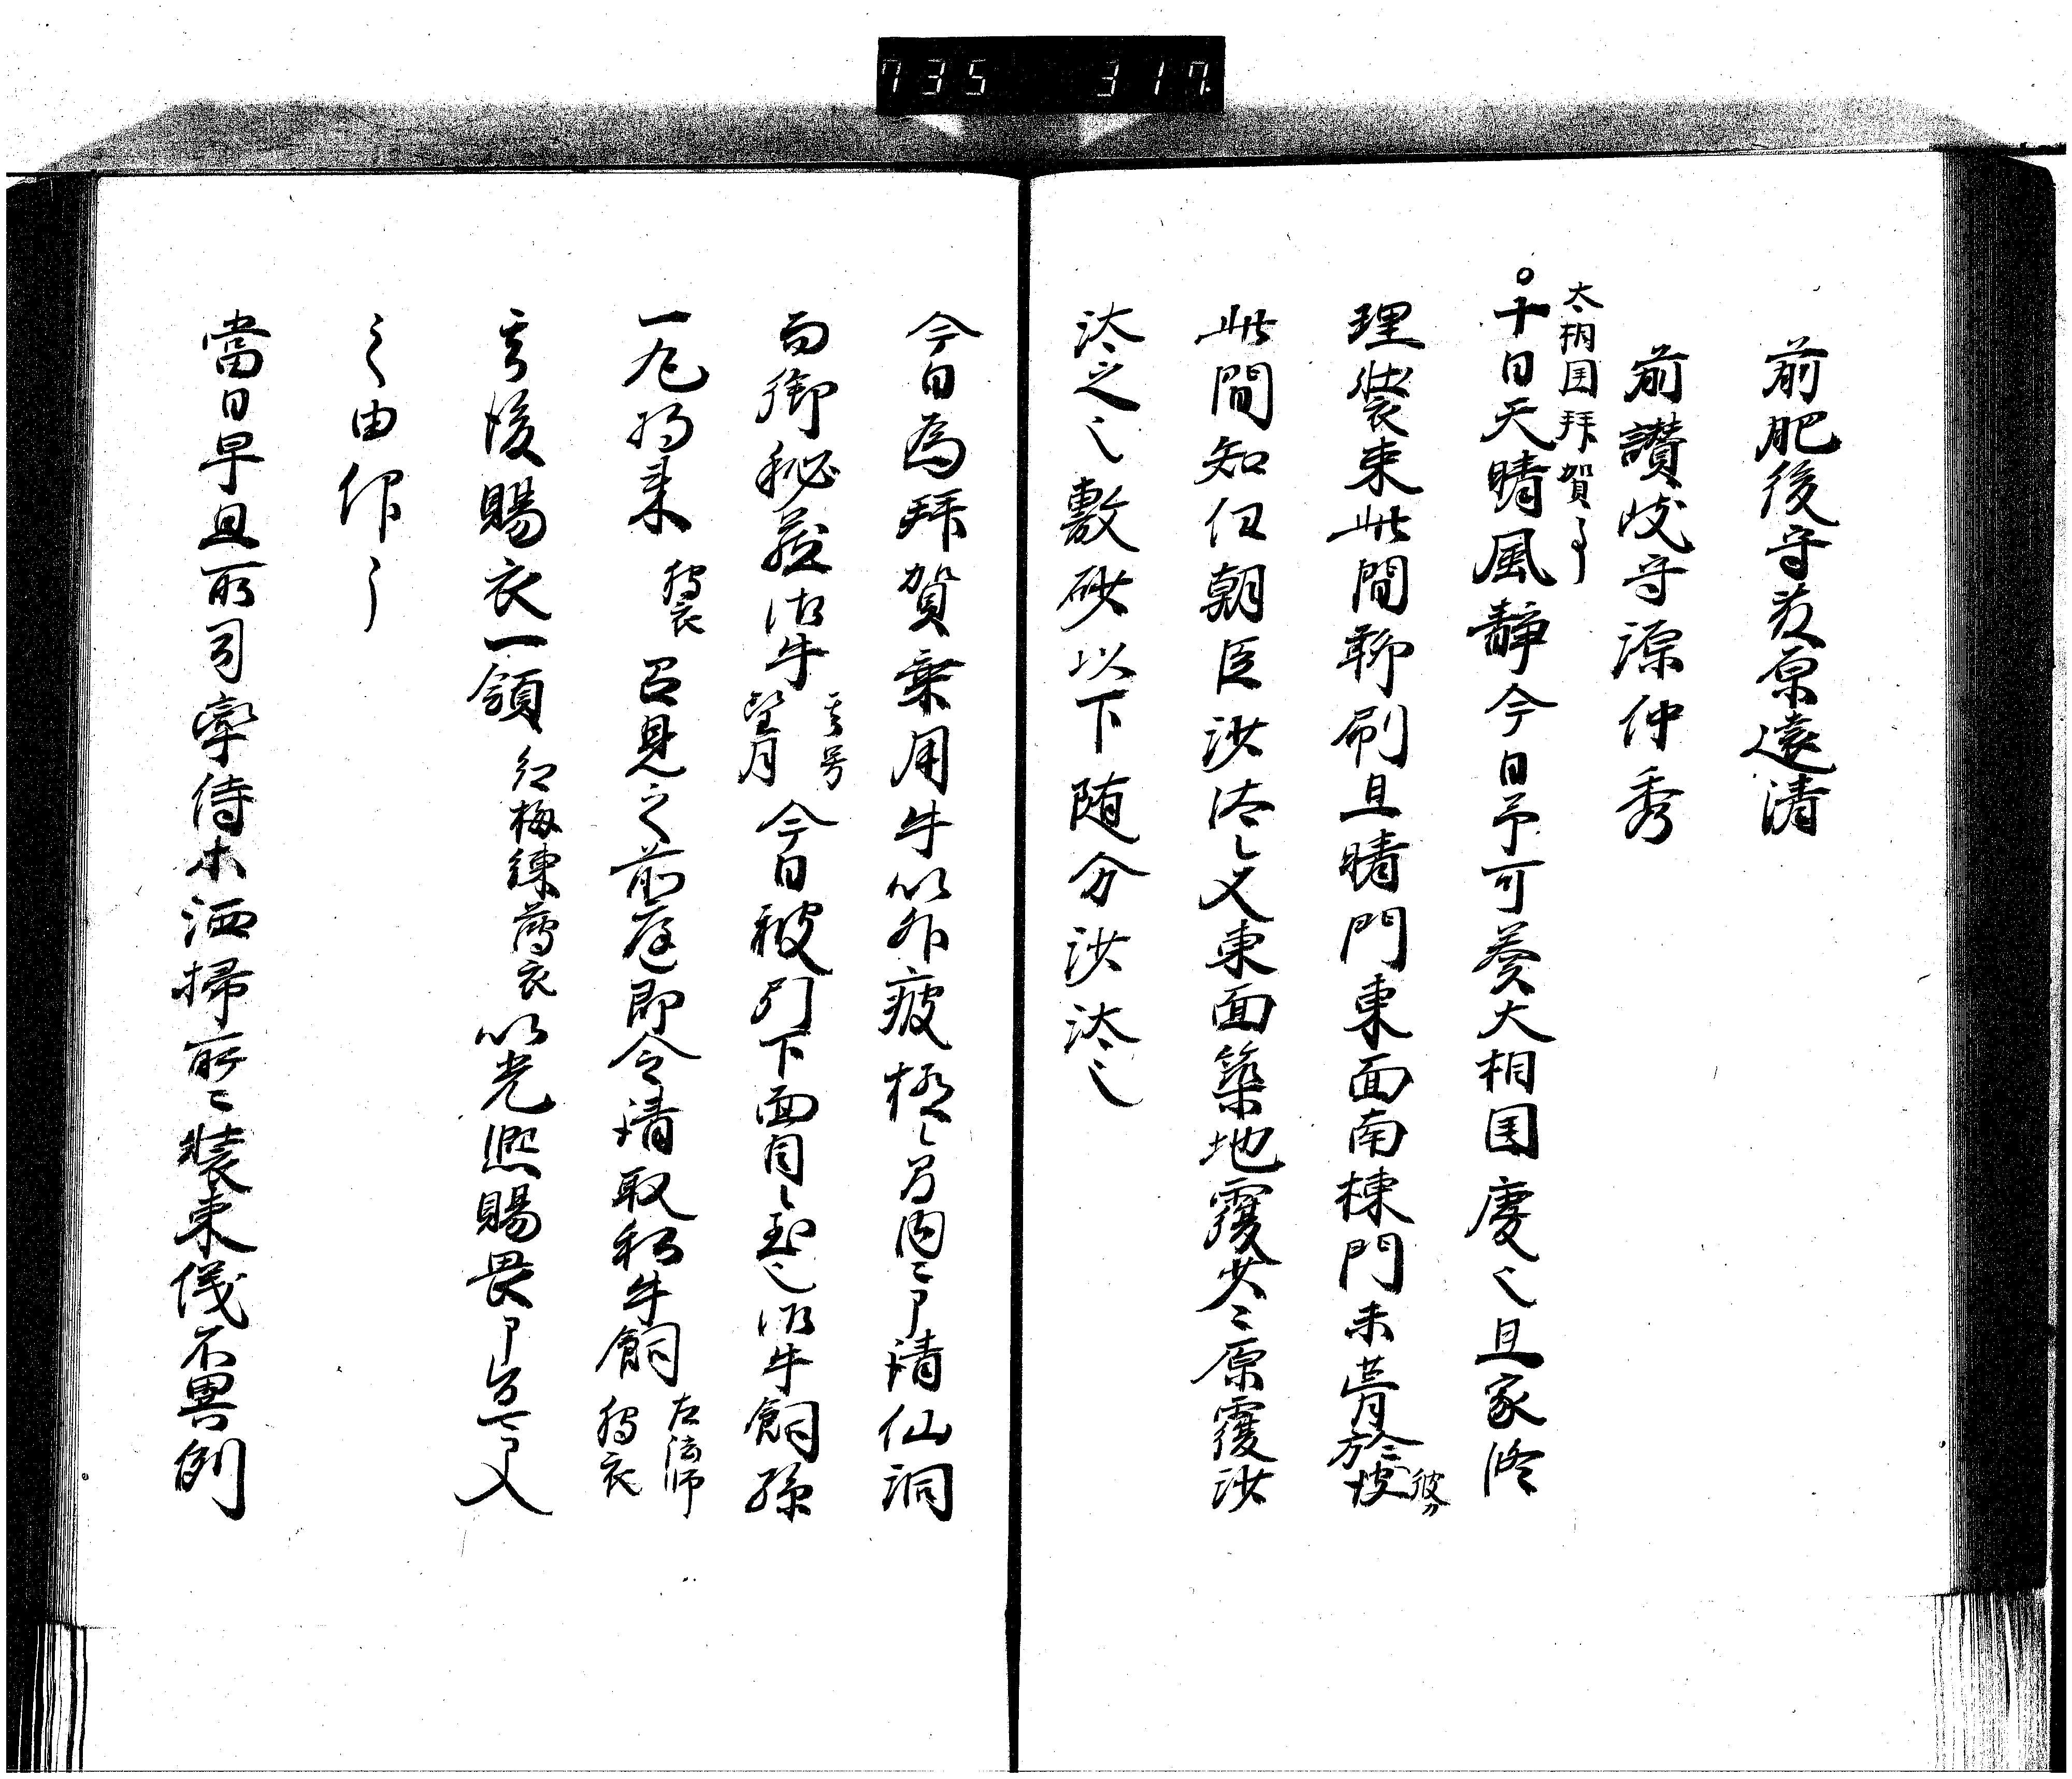 735 317
前肥後守藤原遠清
前讃岐守源仲秀
太相国拝賀事
○十日天晴風静今日予可奏大相国慶之且家修
理装束此間聊刷且晴門東面南棟門未葺於
此間知任朝臣沙汰之又東面築地覆共ミ原覆沙
汰之之敷砂以下随分沙汰之
今日為拝賀乗用牛以外疲極之間内ミ申請仙洞
面御秘蔵御牛
其号
望月
今日被引下面目之至也御牛飼孫
一丸将来
狩衣
召見之前庭即令請取私牛飼
左法師
狩衣
其後賜衣一領
紅梅練薄衣
以光熙賜畏申
之由仰之
當日早旦所司率侍等洒掃所ミ装束儀不異例